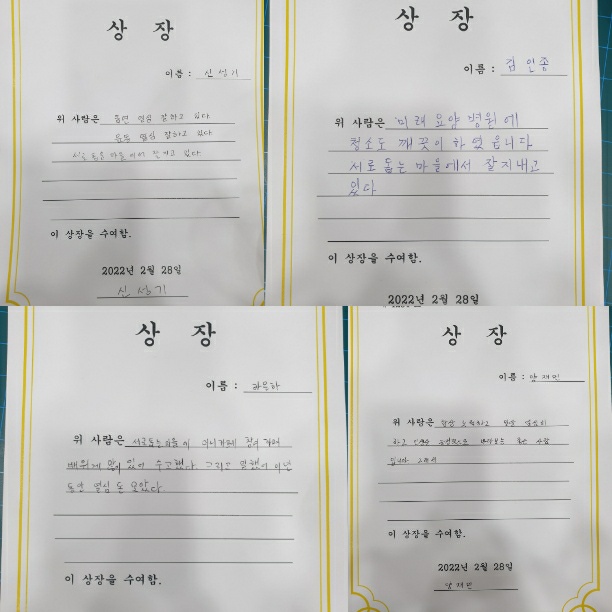 상 장
이름 : 신성기
위 사람은 금연 열심 잘하고 있다
운동 열심 잘하고 있다
서로돕는마을에서 잘지내고 있다
이 상장을 수여함.
2022년 2월 28일
신성기
상 장
이름 : 김인종
위 사람은 미래요양병원에
청소도 깨끗이 하였읍니다
서로 돕는 마을에서 잘지내고
있다
이 상장을 수여함.
2022년 2월 28일
상 장
이름 :
위 사람은 서로돕는마을에
있어 수고했다. 그리고 일했어
동안 열심 돈 모았다
이 상장을 수여함.
상 장
이름 : 양재민
위 사람은 항상 노력하고 항상 열심히
하고 사람
입니다
이 상장을 수여함.
2022년 2월 28일
양재민